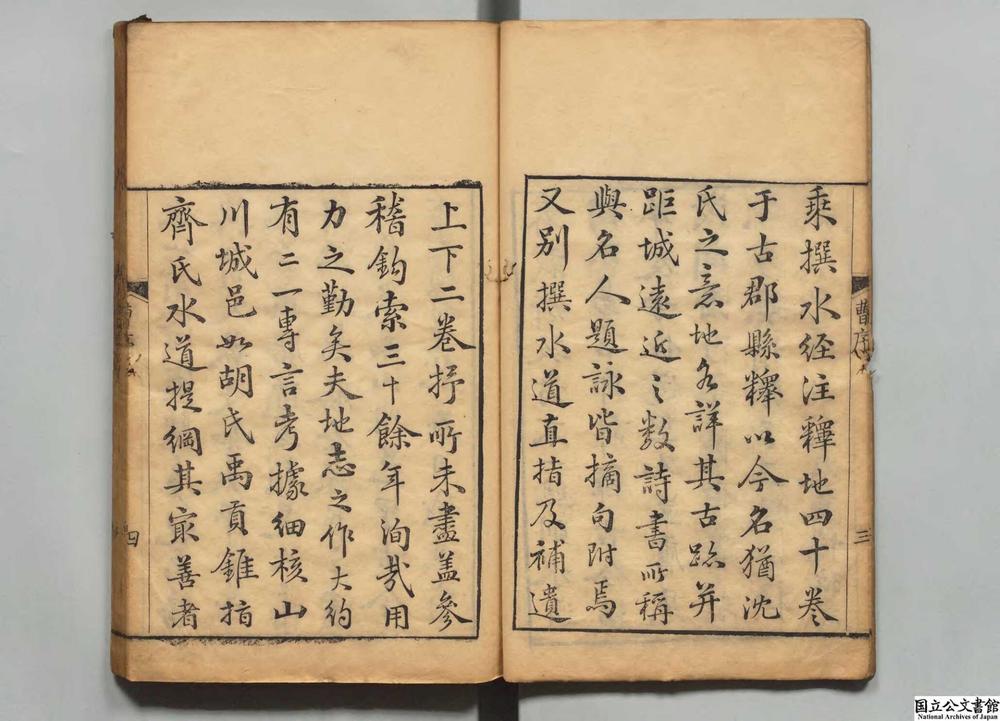 曹序
三
乘撰水経注釋地四十卷
于古郡縣釋以今名猶沈
氏之意地名詳其古跡并
距城遠近之数詩書所稱
與名人題詠皆摘句附焉
又别撰水道直指及補遺
上下二卷抒所未盡盖參
稽鈎索三十餘年洵哉用
力之勤矣夫地志之作大約
有二一專言考據細核山
川城邑如胡氏禹貢錐指
齊氏水道提綱其冣善者
四
国立公文書館
National Archives of Japan